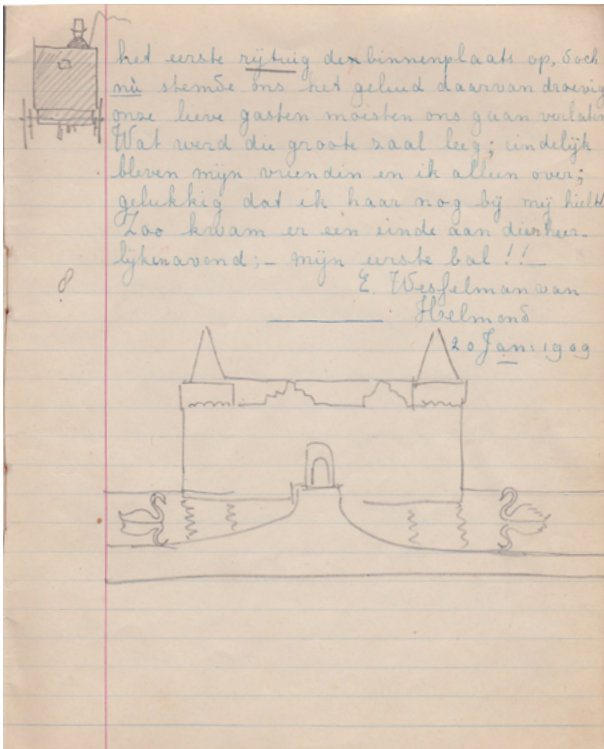 het eerste rijtuig de binnenplaats op, doch
nù stemde ons het geluid daarvan droevig
onze lieve gasten moisten ons gaan verlaten
Wat werd die groote zaal leeg; eindelijk
bleven mijn vriendin en ik alleen over;
gelukkig dat ik haar nog bij mij hield
Zoo kwam er een einde aan dien heer-
lijken avond; – mijn eerste bal!!
E. Wesselman van
Helmond
20 Jan: 1909